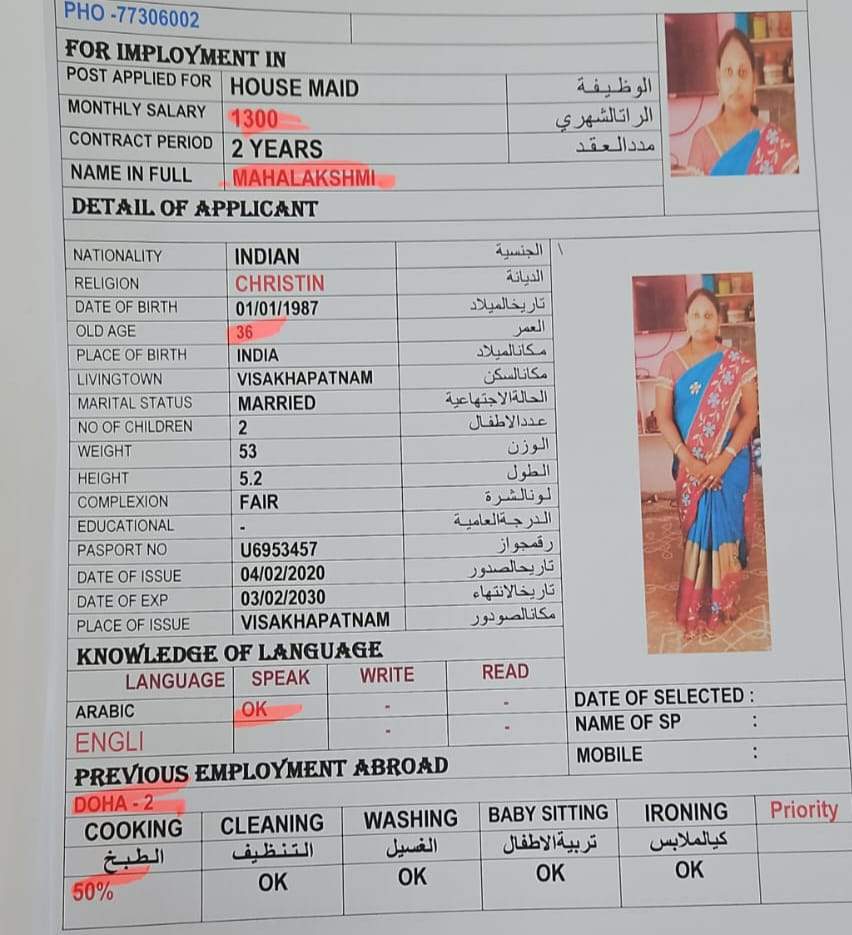 PHO -77306002
FOR IMPLOYMENT IN
POST APPLIED FOR HOUSE MAID الوظيفة
MONTHLY SALARY 1300 الراتالشهري
CONTRACT PERIOD 2 YEARS مددالعقد
NAME IN FULL MAHALAKSHMI
DETAIL OF APPLICANT
NATIONALITY INDIAN الجنسية \
RELIGION CHRISTIN الديانة
DATE OF BIRTH 01/01/1987 تاريخالميلاد
OLD AGE 36 العمر
PLACE OF BIRTH INDIA مكانالميلاد
LIVINGTOWN VISAKHAPATNAM مكانالسكن
MARITAL STATUS MARRIED الحالةالاجتهاعية
NO OF CHILDREN 2 عددالاطفال
WEIGHT 53 الوزن
HEIGHT 5.2 الطول
COMPLEXION FAIR لونالشرة
EDUCATIONAL - الدرجةالعامية
PASPORT NO U6953457 رقمجواز
DATE OF ISSUE 04/02/2020 تاريخالصدور
DATE OF EXP 03/02/2030 تاريخالانتهاء
PLACE OF ISSUE VISAKHAPATNAM مكانالصودور
KNOWLEDGE OF LANGUAGE
LANGUAGE SPEAK WRITE READ
ARABIC OK - -
ENGLI - -
DATE OF SELECTED :
NAME OF SP :
MOBILE :
PREVIOUS EMPLOYMENT ABROAD
DOHA - 2
COOKING CLEANING WASHING BABY SITTING IRONING Priority
الطبخ التنظيف الغسيل تربيةالاطفال كيالملابس
50% OK OK OK OK